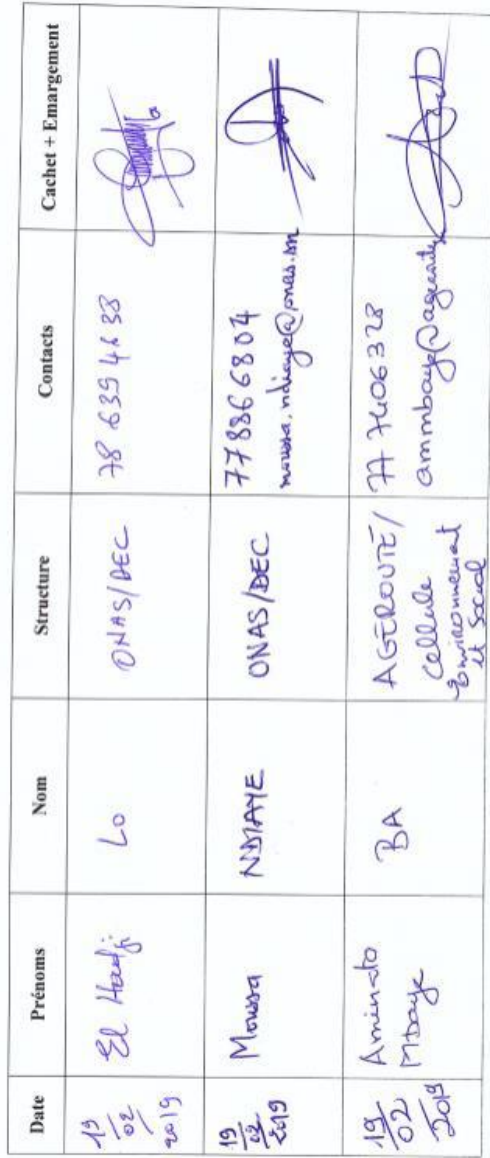 Date Prénoms Nom Structure Contacts Cachet + Emargement
19
02
2019
El Hadji
Lo
ONAS/DEC
78 639 46 38
19
02
2019
Moussa
NDIAYE
ONAS/DEC
77 886 68 04
moussa.ndiaye@onas.sn
19
02
2019
Aminato
MBaye
BA
AGEROUTE/
Cellule
Environnement
et Social
77 740 63 28